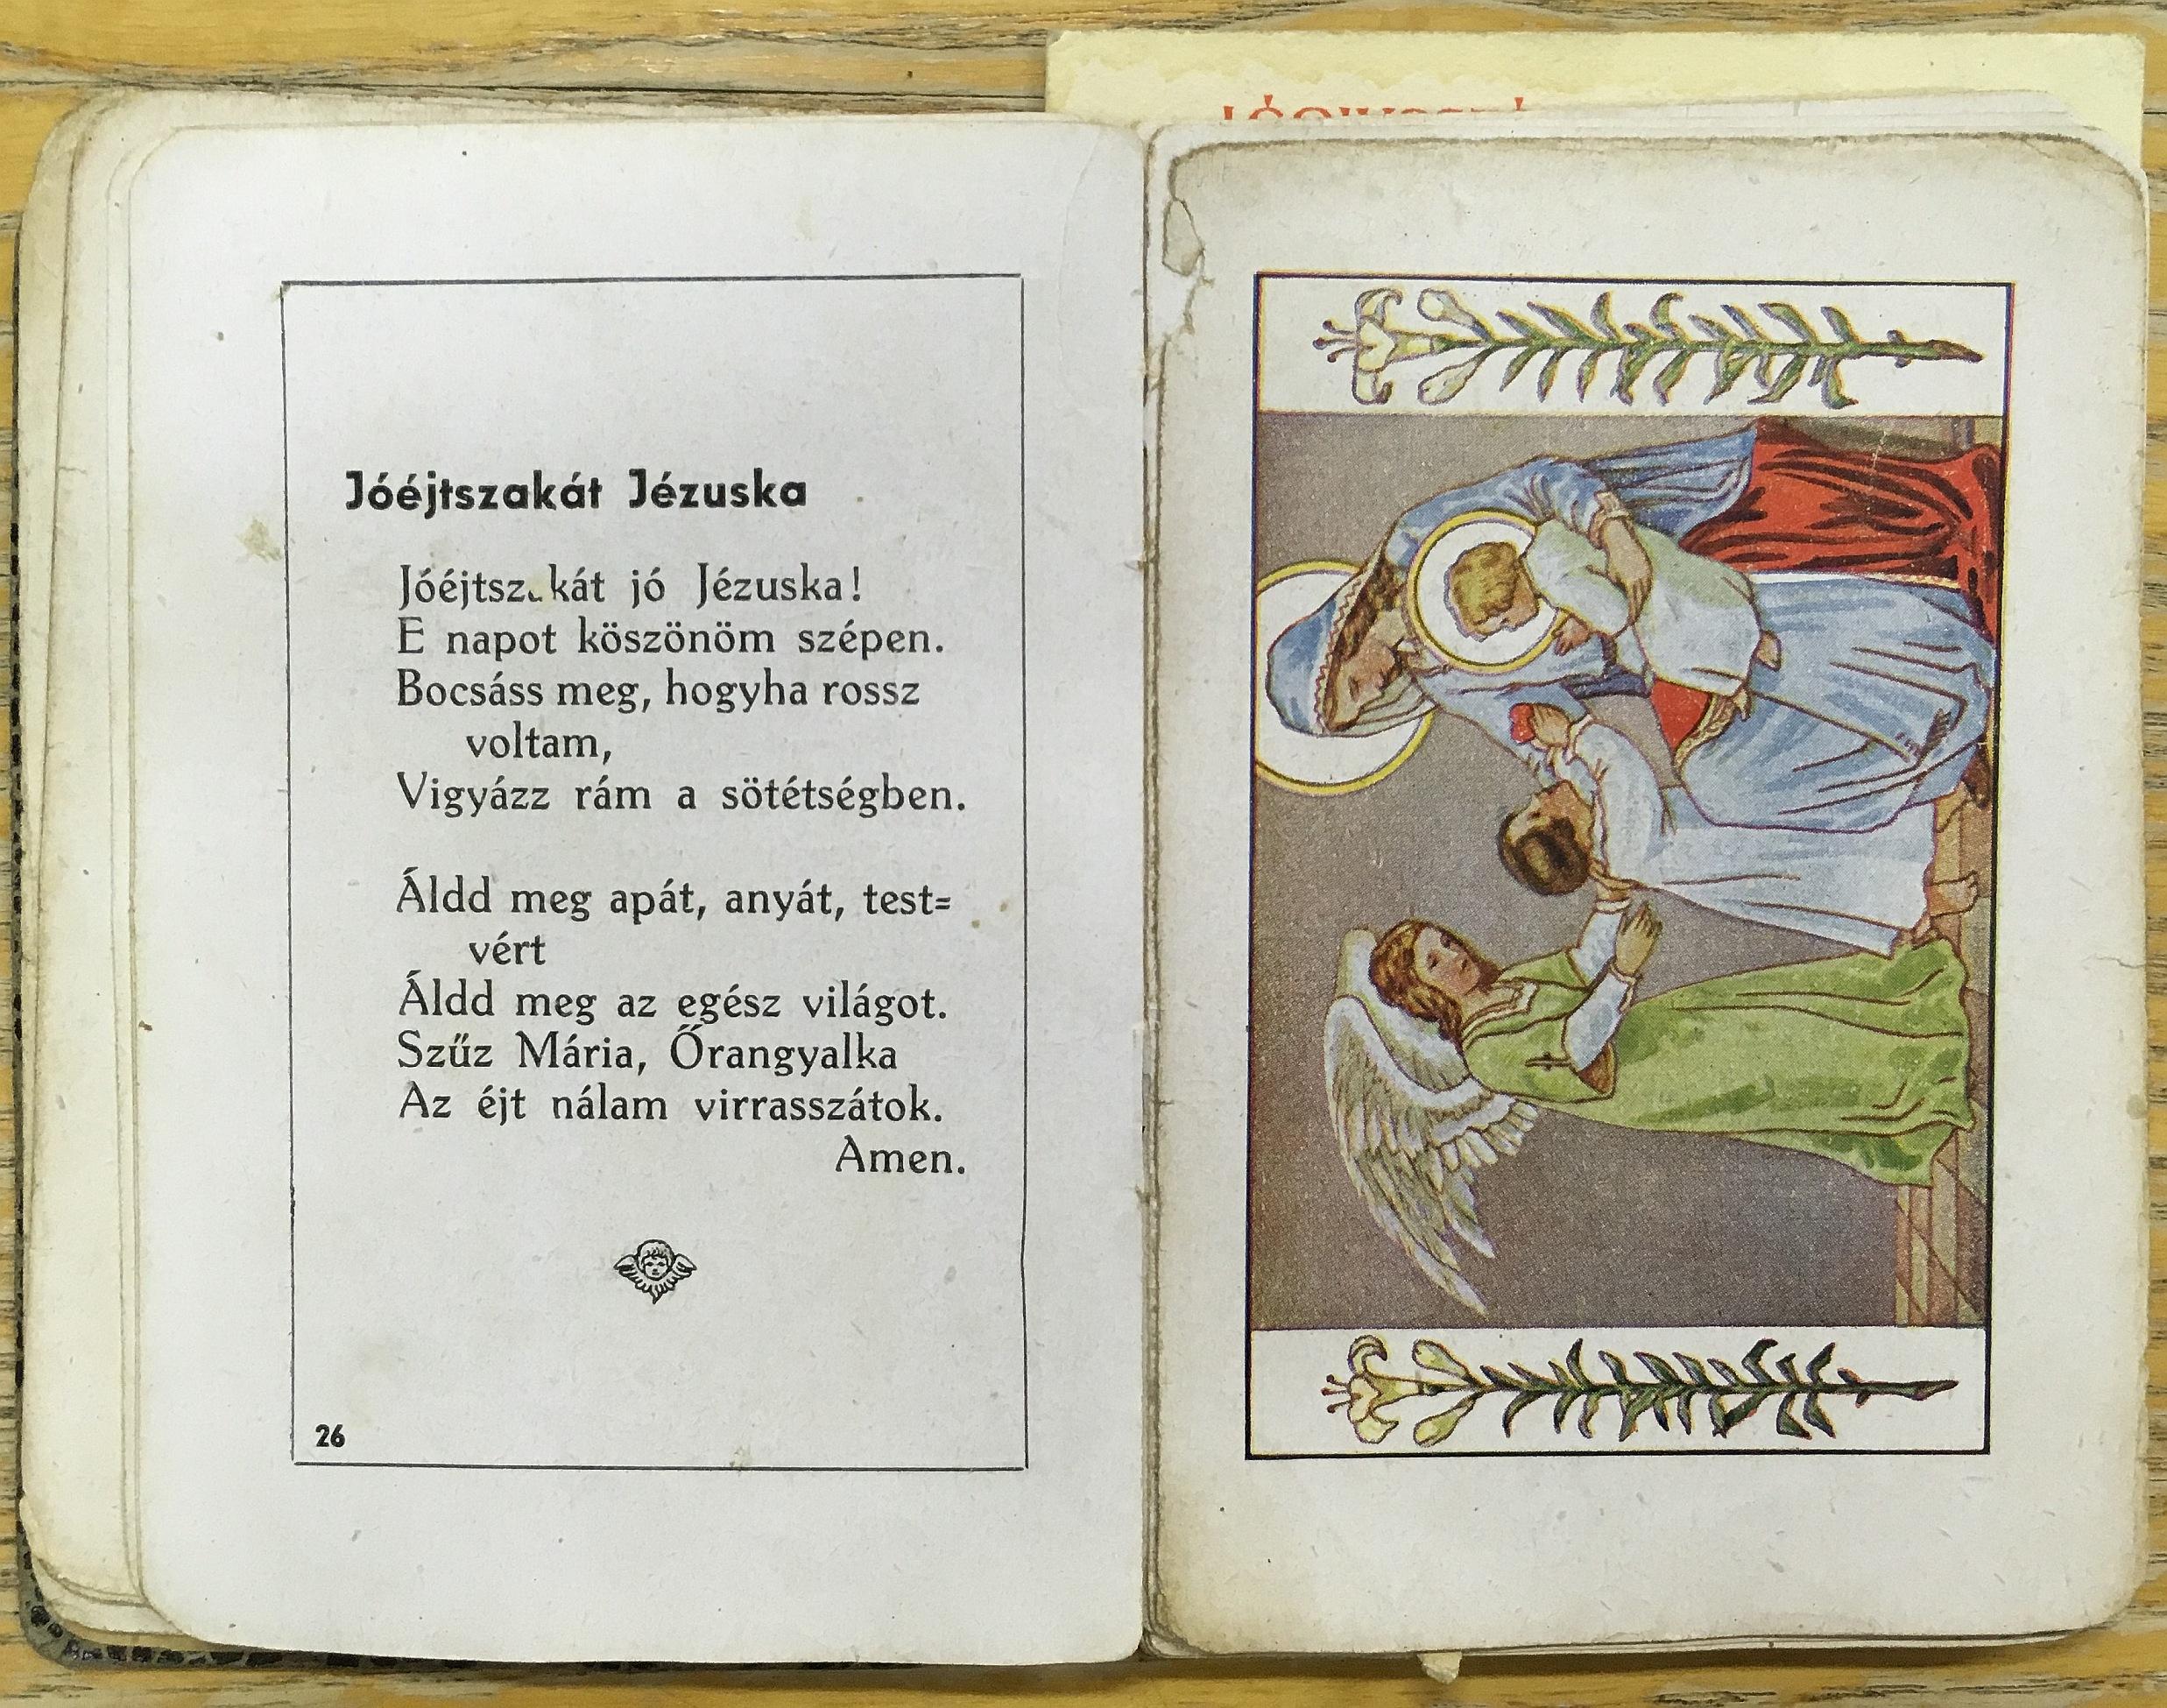 Jóéjtszakát Jézuska
Jóéjtszakát jó Jézuska!
E napot köszönöm szépen.
Bocsáss meg, hogyha rossz
voltam,
Vigyázz rám a sötétségben.
Áldd meg apát, anyát, test=
vért
Áldd meg az egész világot.
Szűz Mária, Őrangyalka
Az éjt nálam virrasszátok.
Amen.
26